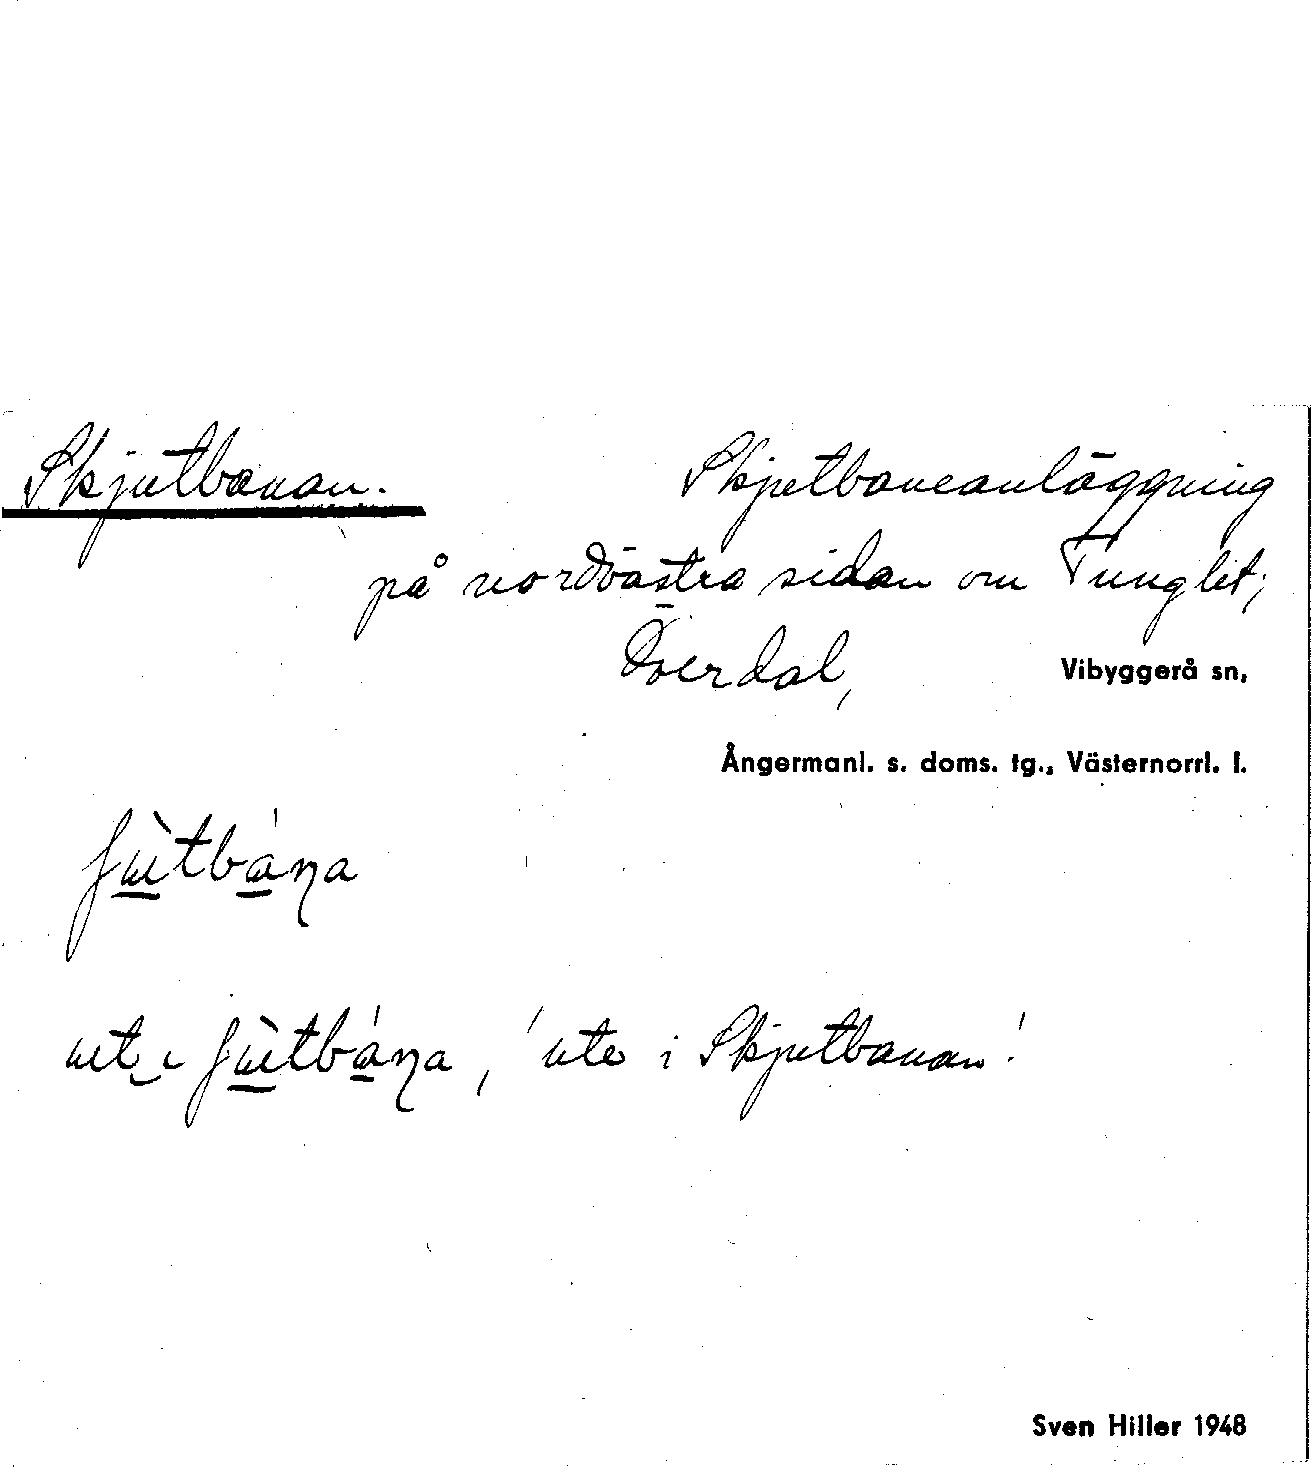 Skjutbanan. Skjutbaneanläggning
på nordvästra sidan om Tunglit;
Överdal, Vibyggerå sn,
Ångermanl. s. doms. tg., Västernorrl. l.
ʃùtbána
ut ι ʃùtbána, 'ute i Skjutbanan'.
Sven Hiller 1948